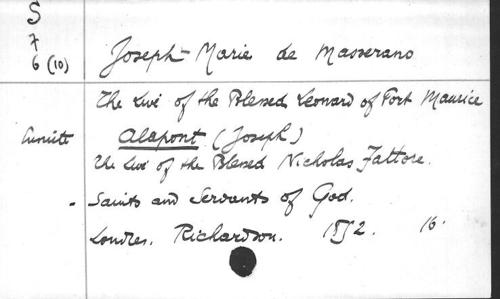 S
7
6 (10)
Joseph-Marie de Masserano
The Live of the Blessed Leonard of Port Maurice
Alapont (Joseph)
The Live of the Blessed Nicholas Fattore.
- Saints and Servants of God.
Londres. Richardson. 1852. 16.